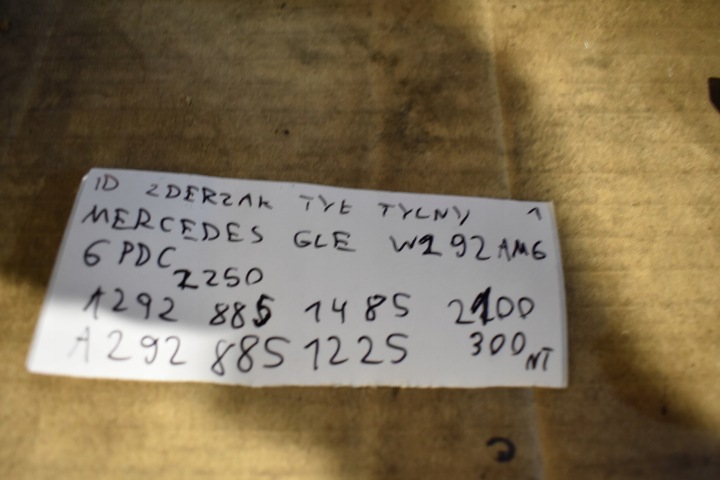 ID ZDERZAK TYŁ TYLNY 1
MERCEDES GLE W292 AMG
6 PDC
2250
A292 885 1485 2100
A292 885 1225 300 NT